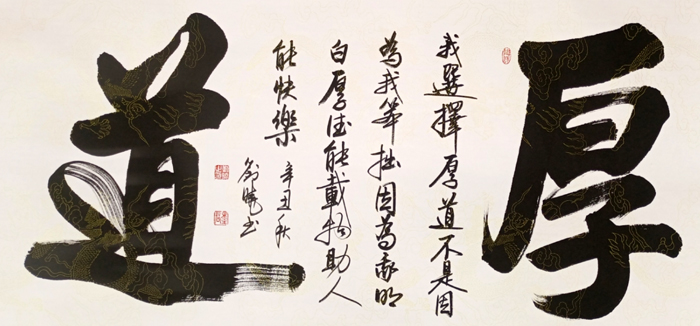 厚
我選擇厚道不是因
為我笨拙因為我明
白厚德能載物助人
能快樂
辛丑秋
道